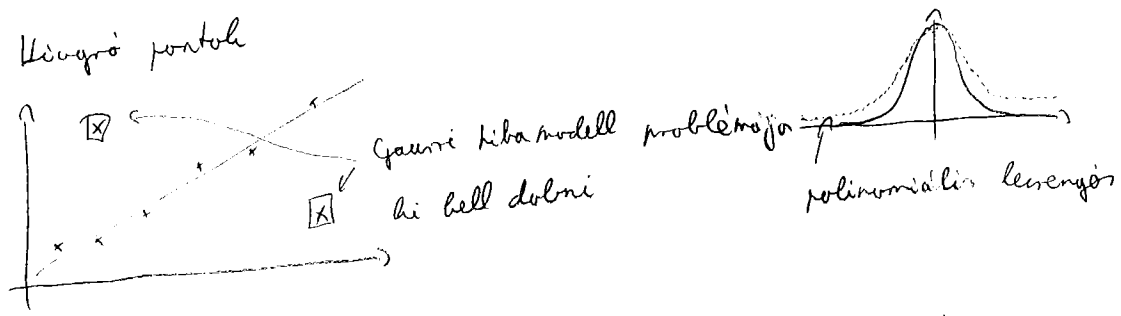 Kiugró pontok
Gaussi hibamodell problémája
ki kell dobni
polinomiális lecsengés